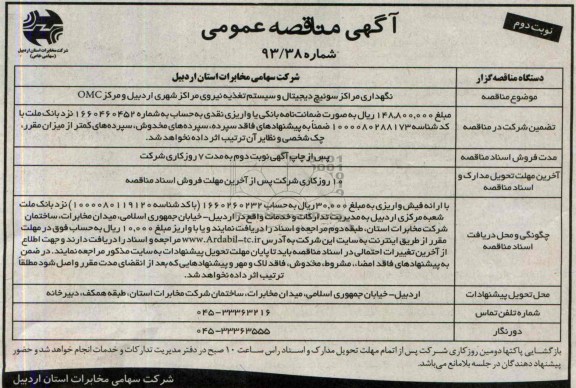 آگهی مناقصه عمومی
شماره ۹۳/۳۸
نوبت دوم
شرکت مخابرات استان اردبیل
(سهامی خاص)
دستگاه مناقصه گزار
شرکت سهامی مخابرات استان اردبیل
موضوع مناقصه
نگهداری مراکز سوئیچ دیجیتال و سیستم تغذیه نیروی مراکز شهری اردبیل و مرکز OMC
تضمین شرکت در مناقصه
مبلغ ۱۴۸،۸۰۰،۰۰۰ ریال به صورت ضمانت نامه بانکی یا واریزی نقدی به حساب به شماره ۱۶۶۰۴۶۰۴۵۲ نزد بانک ملت با
کد شناسه ۱۰۰۰۰۸۰۲۸۸۱۷۳ ضمناً به پیشنهادهای فاقد سپرده، سپرده های مخدوش، سپرده های کمتر از میزان مقرر،
چک شخصی و نظایر آن ترتیب اثر داده نخواهد شد.
مدت فروش اسناد مناقصه
پس از چاپ آگهی نوبت دوم به مدت ۷ روز کاری شرکت
آخرین مهلت تحویل مدارک و
اسناد مناقصه
۱۰ روز کاری شرکت پس از آخرین مهلت فروش اسناد مناقصه
چگونگی و محل دریافت
اسناد مناقصه
با ارائه فیش واریزی به مبلغ ۳۰،۰۰۰ ریال به حساب ۱۶۶۰۲۶۰۲۳۲ (با کد شناسه ۱۰۰۰۰۸۰۱۱۹۱۲۰) نزد بانک ملت
شعبه مرکزی اردبیل به مدیریت تدارکات و خدمات واقع در اردبیل- خیابان جمهوری اسلامی، میدان مخابرات، ساختمان
شرکت مخابرات استان، طبقه دوم مراجعه و اسناد را دریافت نمایند و یا با واریز مبلغ ۱۰،۰۰۰ ریال به حساب فوق در مهلت
مقرر از طریق اینترنت به سایت این شرکت به آدرس www.Ardabil-tc.ir مراجعه و اسناد را دریافت دارند و جهت اطلاع
از آخرین تغییرات احتمالی در اسناد مناقصه باید تا پایان مهلت تحویل پیشنهادات به سایت مذکور مراجعه نمایند. در ضمن
به پیشنهادهای فاقد امضاء، مشروط، مخدوش، فاقد لاک و مهر و پیشنهادهایی که بعد از انقضای مدت مقرر واصل شود مطلقاً
ترتیب اثر داده نخواهد شد.
محل تحویل پیشنهادات
اردبیل- خیابان جمهوری اسلامی، میدان مخابرات، ساختمان شرکت مخابرات استان، طبقه همکف، دبیرخانه
شماره تلفن تماس
۰۴۵-۳۳۳۶۳۲۱۶
دورنگار
۰۴۵-۳۳۳۶۳۵۵۵
بازگشایی پاکتها دومین روز کاری شرکت پس از اتمام مهلت تحویل مدارک و اسناد راس ساعت ۱۰ صبح در دفتر مدیریت تدارکات و خدمات انجام خواهد شد و حضور
پیشنهاد دهندگان در جلسه بلامانع می باشد.
شرکت سهامی مخابرات استان اردبیل